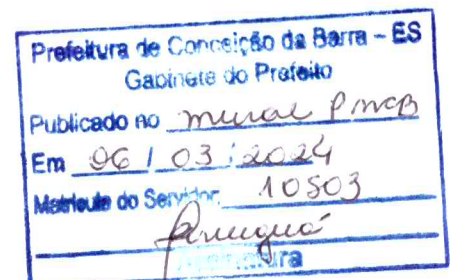 Prefeitura de Conceição da Barra – ES
Gabinete do Prefeito
Publicado no mural PMCB
Em 06 / 03 / 2024
Matrícula do Servidor 10503
Assinatura